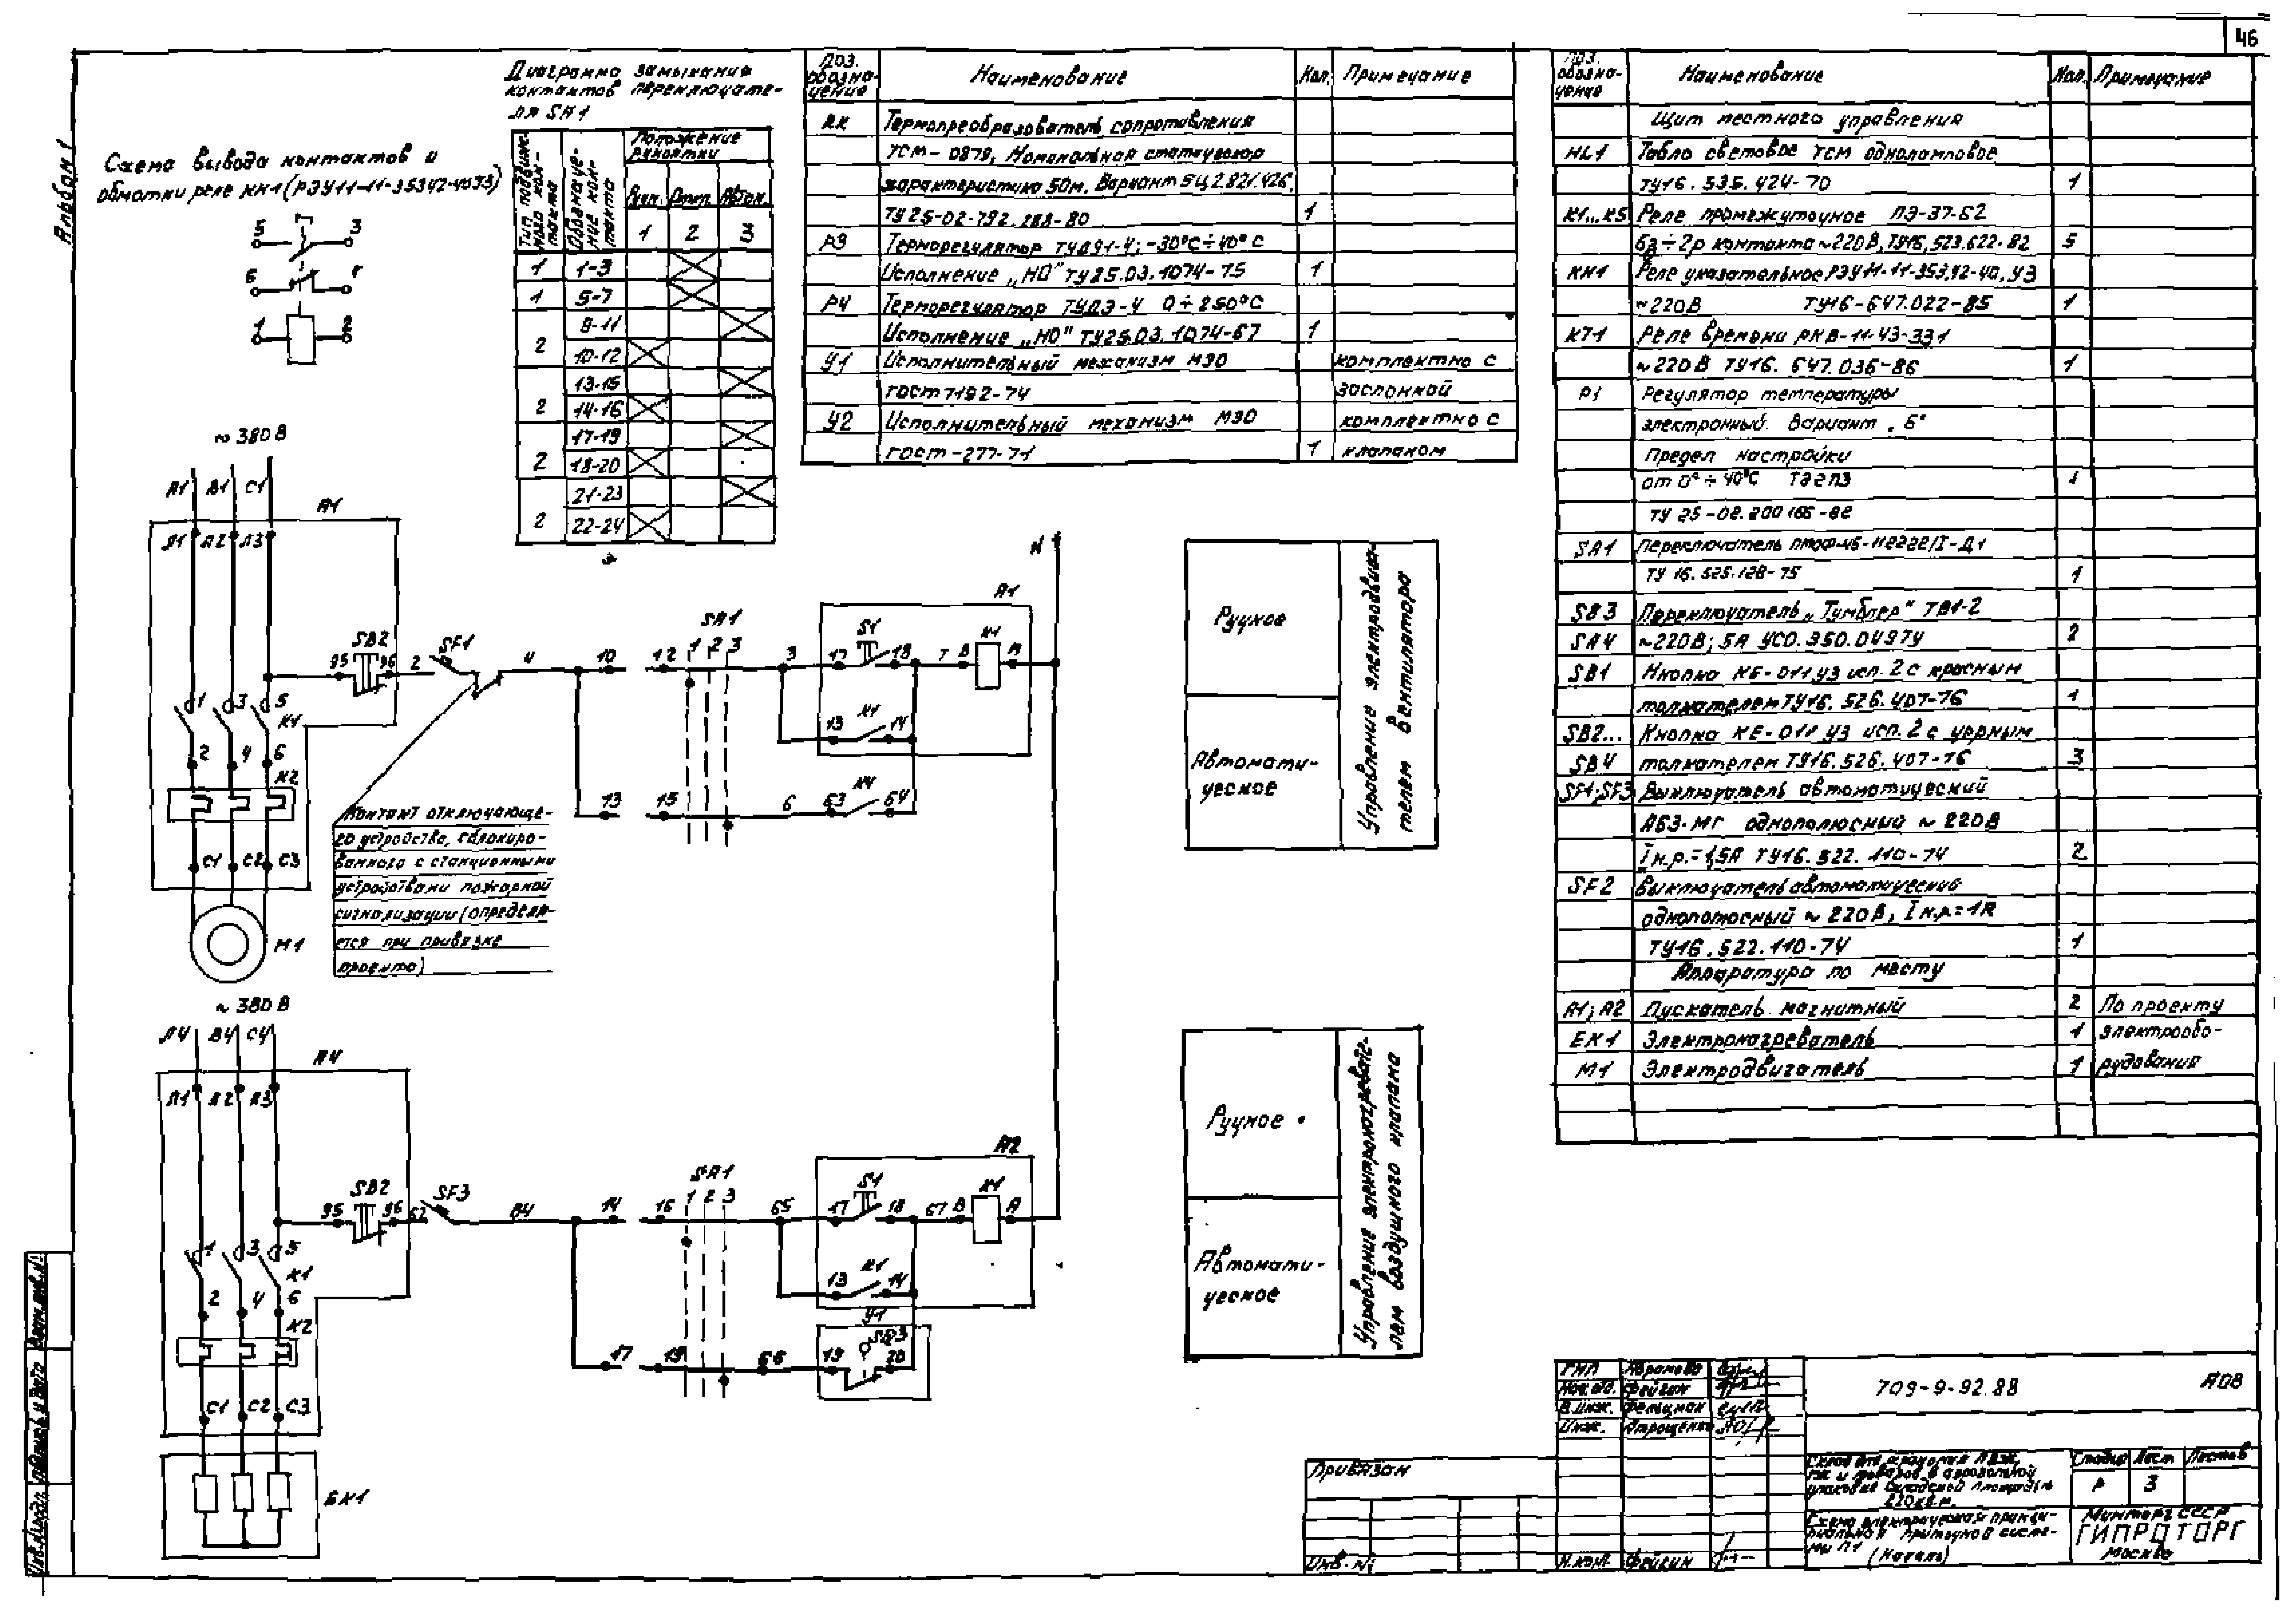 46
Альбом 1
Схема вывода контактов и
обмотки реле КН1 (РЭУ11-11-35342-40У3)
5
3
6
1
2
Диаграмма замыкания
контактов переключате-
ля SA1
Тип подвиж-
ного кон-
такта
Обозначе-
ние кон-
такта
Положение
рукоятки
Руч. Откл. Автом.
1 2 3
1 1-3
1 5-7
9-11
2 10-12
13-15
2 14-16
17-19
2 18-20
21-23
2 22-24
Поз. обозна-
чение
Наименование
Кол.
Примечание
RK Термопреобразователь сопротивления
ТСМ-0879, Номинальная статическая
характеристика 50М. Вариант 5Ц2.821.426.
ТУ25-02-792.288-80 1
Р3 Терморегулятор ТУДЭ1-4; -30°С÷40°С
Исполнение „НО" ТУ25.03.1074-75 1
Р4 Терморегулятор ТУДЭ-4 0÷250°С
Исполнение „НО" ТУ25.03.1074-67 1
У1 Исполнительный механизм МЭО комплектно с
ГОСТ 7192-74 заслонкой
У2 Исполнительный механизм МЭО комплектно с
ГОСТ-277-71 1 клапаном
Поз.
обозна-
чение
Наименование
Кол.
Примечание
Щит местного управления
HL1 Табло световое ТСМ одноламповое
ТУ16.535.424-70 1
К1...К5 Реле промежуточное ПЭ-37-62
6з÷2р контакта ~220В, ТУ16.523.622-82 5
КН1 Реле указательное РЭУ11-11-353,42-40,У3
~220В ТУ16-647.022-85 1
КТ1 Реле времени РКВ-11-43-331
~220В ТУ16.647.036-86 1
Р1 Регулятор температуры
электронный. Вариант „Б"
Предел настройки
от 0°÷40°С ТЭ2П3 1
ТУ 25-02.200166-82
SA1 Переключатель
ТУ 16.525.128-75 1
SB3 Переключатель „Тумблер" ТВ1-2
SA4 ~220В; 5А УСО.350.049ТУ 2
SB1 Кнопка КЕ-011У3 исп. 2 с красным
толкателем ТУ16.526.407-76 1
SB2... Кнопка КЕ-011 У3 исп. 2 с черным
SB4 толкателем ТУ16.526.407-76 3
SF1; SF3 Выключатель автоматический
А63-МГ однополюсный ~220В
Iн.р.=1,5А ТУ16.522.110-74 2
SF2 Выключатель автоматический
однополюсный ~220В, Iн.р.=1А
ТУ16.522.110-74 1
Аппаратура по месту
А1; А2 Пускатель магнитный 2 По проекту
ЕК1 Электронагреватель 1 электрообо-
М1 Электродвигатель 1 рудования
~380В
Л1 В1 С1
А1
Л1 Л2 Л3
95 SB2 96 2 SF1 4
1 3 5 К1
2 4 6
К2
С1 С2 С3
М1
Контакт отключающе-
го устройства, сблокиро-
ванного с станционными
устройствами пожарной
сигнализации (определя-
ется при привязке
проекта)
10 12
SA1
1 2 3
3
А1
17 S1 18 7 В К1 А
13 К1 14
13 15
6 63 К4 64
N
Ручное
Автомати-
ческое
Управление электродвига-
телем вентилятора
~380В
Л4 В4 С4
А4
Л1 Л2 Л3
95 SB2 96 62 SF3 84
1 3 5 К1
2 4 6
К2
С1 С2 С3
ЕК1
14 16
SA1
1 2 3
65
А2
17 S1 18 67 В К1 А
13 К1 14
У1
17 19
66 19 SQ3 20
Ручное
Автомати-
ческое
Управление электронагревате-
лем воздушного клапана
ГИП Абрамова
Нач.отд. Фейгин
В.инж. Фельцман
Инж.
Н.конт. Фейгин
709-9-92.88 А08
220кв.м.
Стадия Лист Листов
Р 3
Схема электрическая принци-
пиальная приточной систе-
мы П1
(Начало)
Минторг СССР
ГИПРОТОРГ
Москва
Привязан
Инв. №
Инв.№подл. Подпись и дата Взам.инв.№